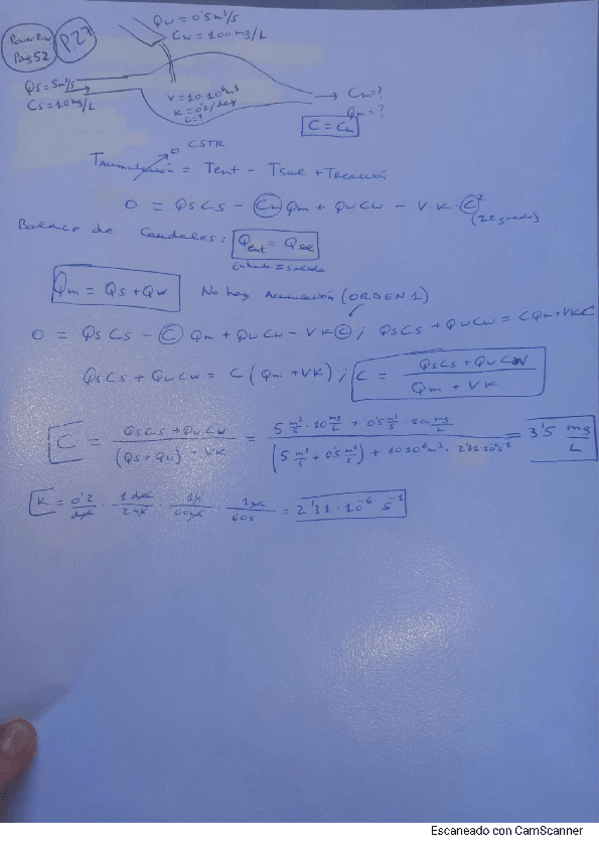 Power Point
Pag 52
P.27
Qw = 0'5 m³/s
Cw = 100 mg/L
Qs = 5 m³/s
Cs = 10 mg/L
V = 10·10⁶ m³
K = 0'2/day
C = ?
→ Cm = ?
Qm = ?
C = Cm
0 CSTR
TAcumulación = Tent - Tsal + TReacción
0 = QsCs - Cm Qm + QwCw - V·K·C
Balance de Caudales: Qent = Qsal
Entrada = salida
Qm = Qs + Qw No hay Acumulación (ORDEN 1)
0 = QsCs - C Qm + QwCw - VKC ; QsCs + QwCw = CQm + VKC
QsCs + QwCw = C (Qm + VK) ; C = QsCs + QwCw / Qm + VK
C = QsCs + QwCw / (Qs + Qw) + VK = 5 m³/s · 10 mg/L + 0'5 m³/s · 100 mg/L / (5 m³/s + 0'5 m³/s) + 10·10⁶ m³ · 2'31·10⁻⁶ s⁻¹ = 3'5 mg/L
K = 0'2/day · 1 day/24h · 1h/60min · 1min/60s = 2'31·10⁻⁶ s⁻¹
Escaneado con CamScanner